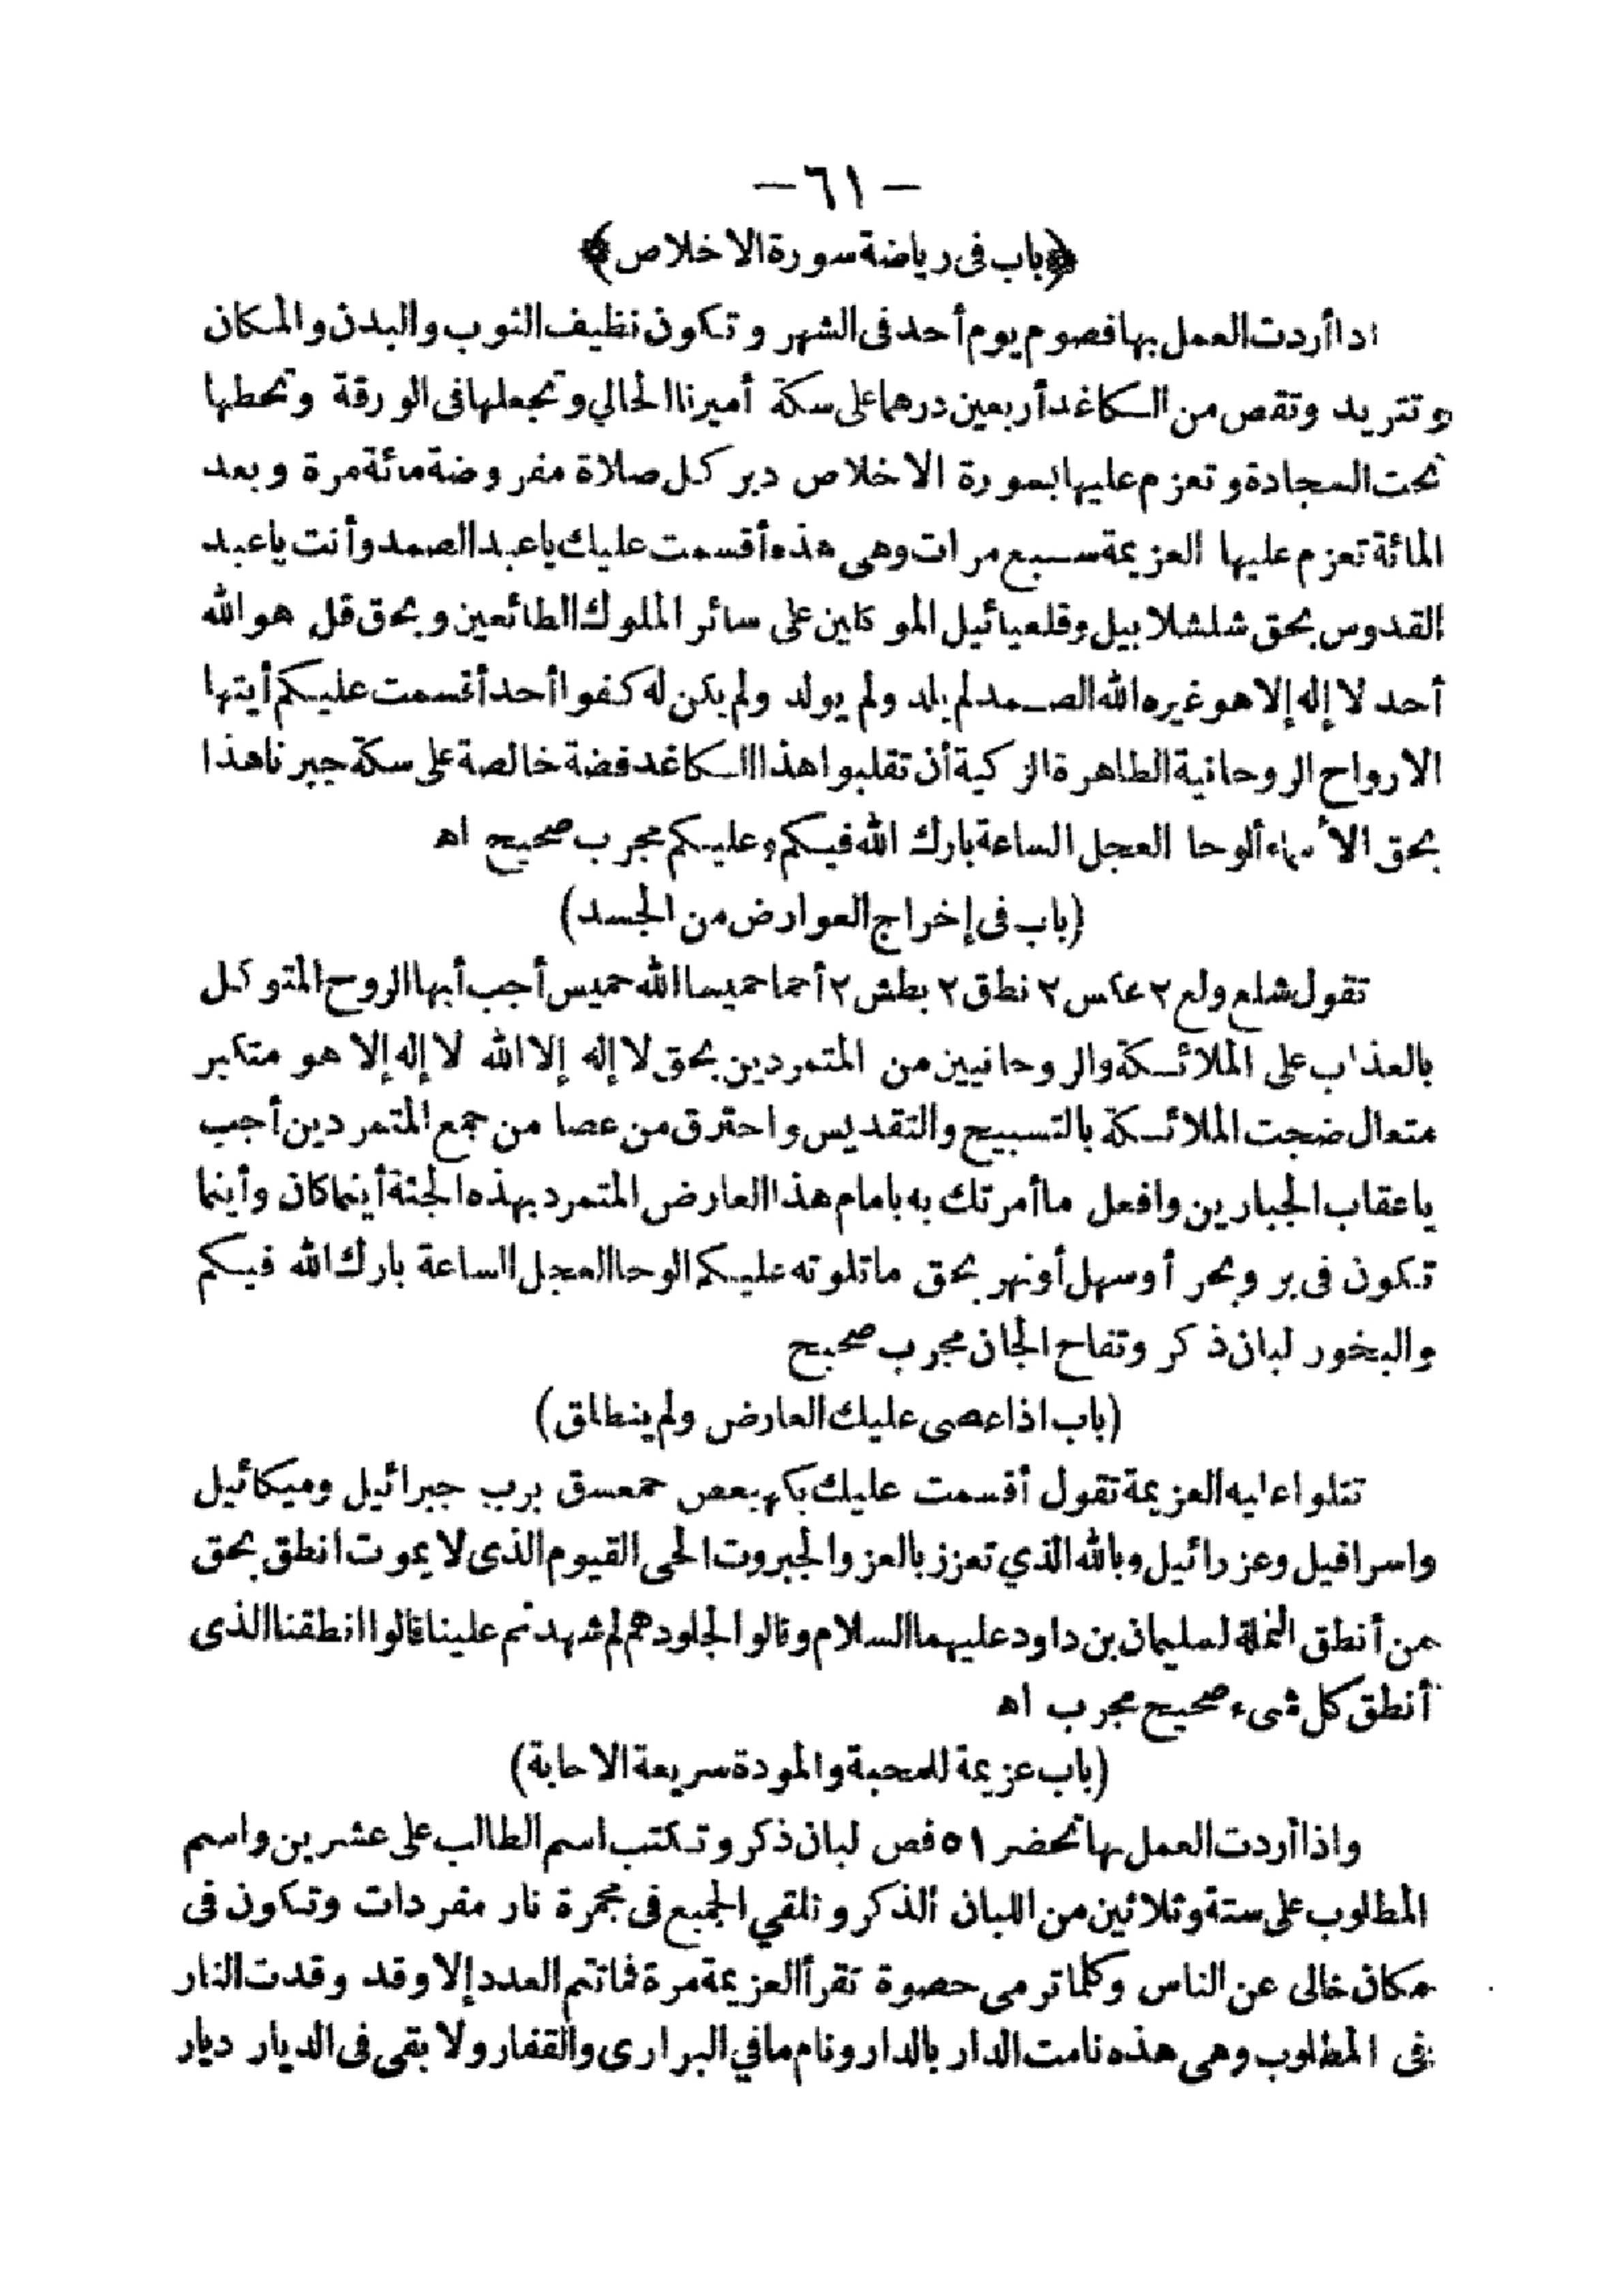 — ٦١ —
﴿باب فى رياضة سورة الاخلاص﴾
اذا أردت العمل بها فصوم يوم أحد فى الشهر و تكون نظيف الثوب والبدن والمكان
وتتريد وتقص من الكاغد أربعين درهما على سكة أميرنا الحالي وتجعلها فى الورقة وتحطها
تحت السجادة وتعزم عليها بسورة الاخلاص دبر كل صلاة مفروضة مائة مرة وبعد
المائة تعزم عليها العزيمة سبع مرات وهى هذه أقسمت عليك ياعبد الصمد وأنت ياعبد
القدوس بحق شلشلابيل وقلعيائيل الموكلين على سائر الملوك الطائعين وبحق قل هو الله
أحد لا إله إلا هو غيره الله الصمد لم يلد ولم يولد ولم يكن له كفوا أحد أقسمت عليكم أيتها
الارواح الروحانية الطاهرة الزكية أن تقلبوا هذا الكاغد فضة خالصة على سكة جبرنا هذا
بحق الأسماء ألوحا العجل الساعة بارك الله فيكم وعليكم مجرب صحيح اه
(باب فى إخراج العوارض من الجسد)
تقول شلع ولع ٢ عكس ٢ نطق ٢ بطش ٢ أحما حميسا الله حميس أجب أيها الروح المتوكل
بالعذاب على الملائكة والروحانيين من المتمردين بحق لا إله إلا الله لا إله إلا هو متكبر
متعال ضجت الملائكة بالتسبيح والتقديس واحترق من عصا من جمع المتمردين أجب
ياعقاب الجبارين وافعل ما أمرتك به بامام هذا العارض المتمرد بهذه الجثة أينما كان وأينما
تكون فى بر وبحر أوسهل أونهر بحق ماتلوته عليكم الوحا العجل الساعة بارك الله فيكم
والبخور لبان ذكر وتفاح الجان مجرب صحيح
(باب اذا عصى عليك العارض ولم ينطلق)
تتلوا عليه العزيمة تقول أقسمت عليك بكهيعص حمعسق برب جبرائيل وميكائيل
واسرافيل وعزرائيل وبالله الذي تعزز بالعز والجبروت الحى القيوم الذى لا يموت انطق بحق
من أنطق النملة لسليمان بن داود عليهما السلام وقالوا لجلودهم لم شهدتم علينا قالوا انطقنا الذى
أنطق كل شىء صحيح مجرب اه
(باب عزيمة للمحبة والمودة سريعة الاجابة)
واذا أردت العمل بها تحضر ٥١ فص لبان ذكر وتكتب اسم الطالب على عشرين واسم
المطلوب على ستة وثلاثين من اللبان الذكر وتلقي الجميع فى مجمرة نار مفردات وتكون فى
مكان خالى عن الناس وكلما ترمى حصوة تقرأ العزيمة مرة فما تتم العدد إلا وقد وقدت النار
فى المطلوب وهى هذه نامت الدار بالدار ونام مافي البرارى والقفار ولا بقى فى الديار ديار